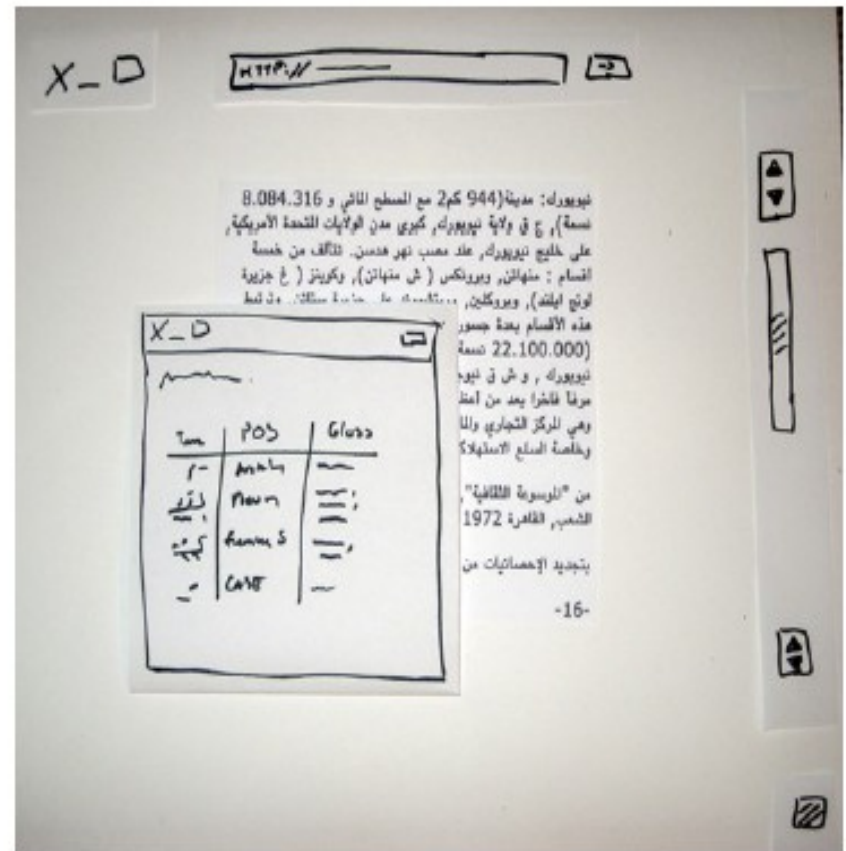 X_D
HTTP://
نيويورك: مدينة(944 كم2 مع المسطح المائي و 8.084.316
نسمة), ع ق ولاية نيويورك, كبرى مدن الولايات المتحدة الأمريكية,
على خليج نيويورك, عند مصب نهر هدسن. تتألف من خمسة
أقسام : منهاتن, وبرونكس ( ش منهاتن), وكوينز ( غ جزيرة
لونج ايلند), وبروكلين,
هذه الأقسام بعدة جسور
(22.100.000 نسمة
نيويورك , و ش ق
مرفأ فاخرا يعد من
وهي المركز التجاري
وخاصة السلع
من "الموسوعة الثقافية",
الشعب, القاهرة 1972
بتجديد الإحصائيات من
-16-
X_D
POS Gloss
Noun
CASE